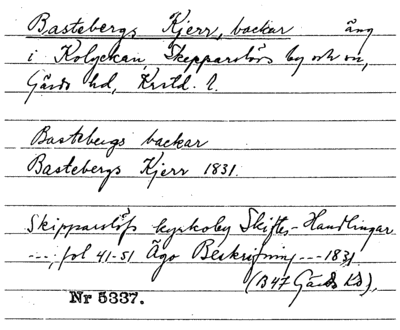 Bastebergs Kjerr, backar äng
i Kolyckan, Skepparslövs by och sn,
Gärds hd, Krstd. l.
Bastebergs backar
Bastebergs Kjerr 1831.
Skipparslöfs kyrkoby Skiftes-Handlingar
---, fol 41-51 Ägo Beskrifning --- 1831
(B47 Gärds hd).
Nr 5337.